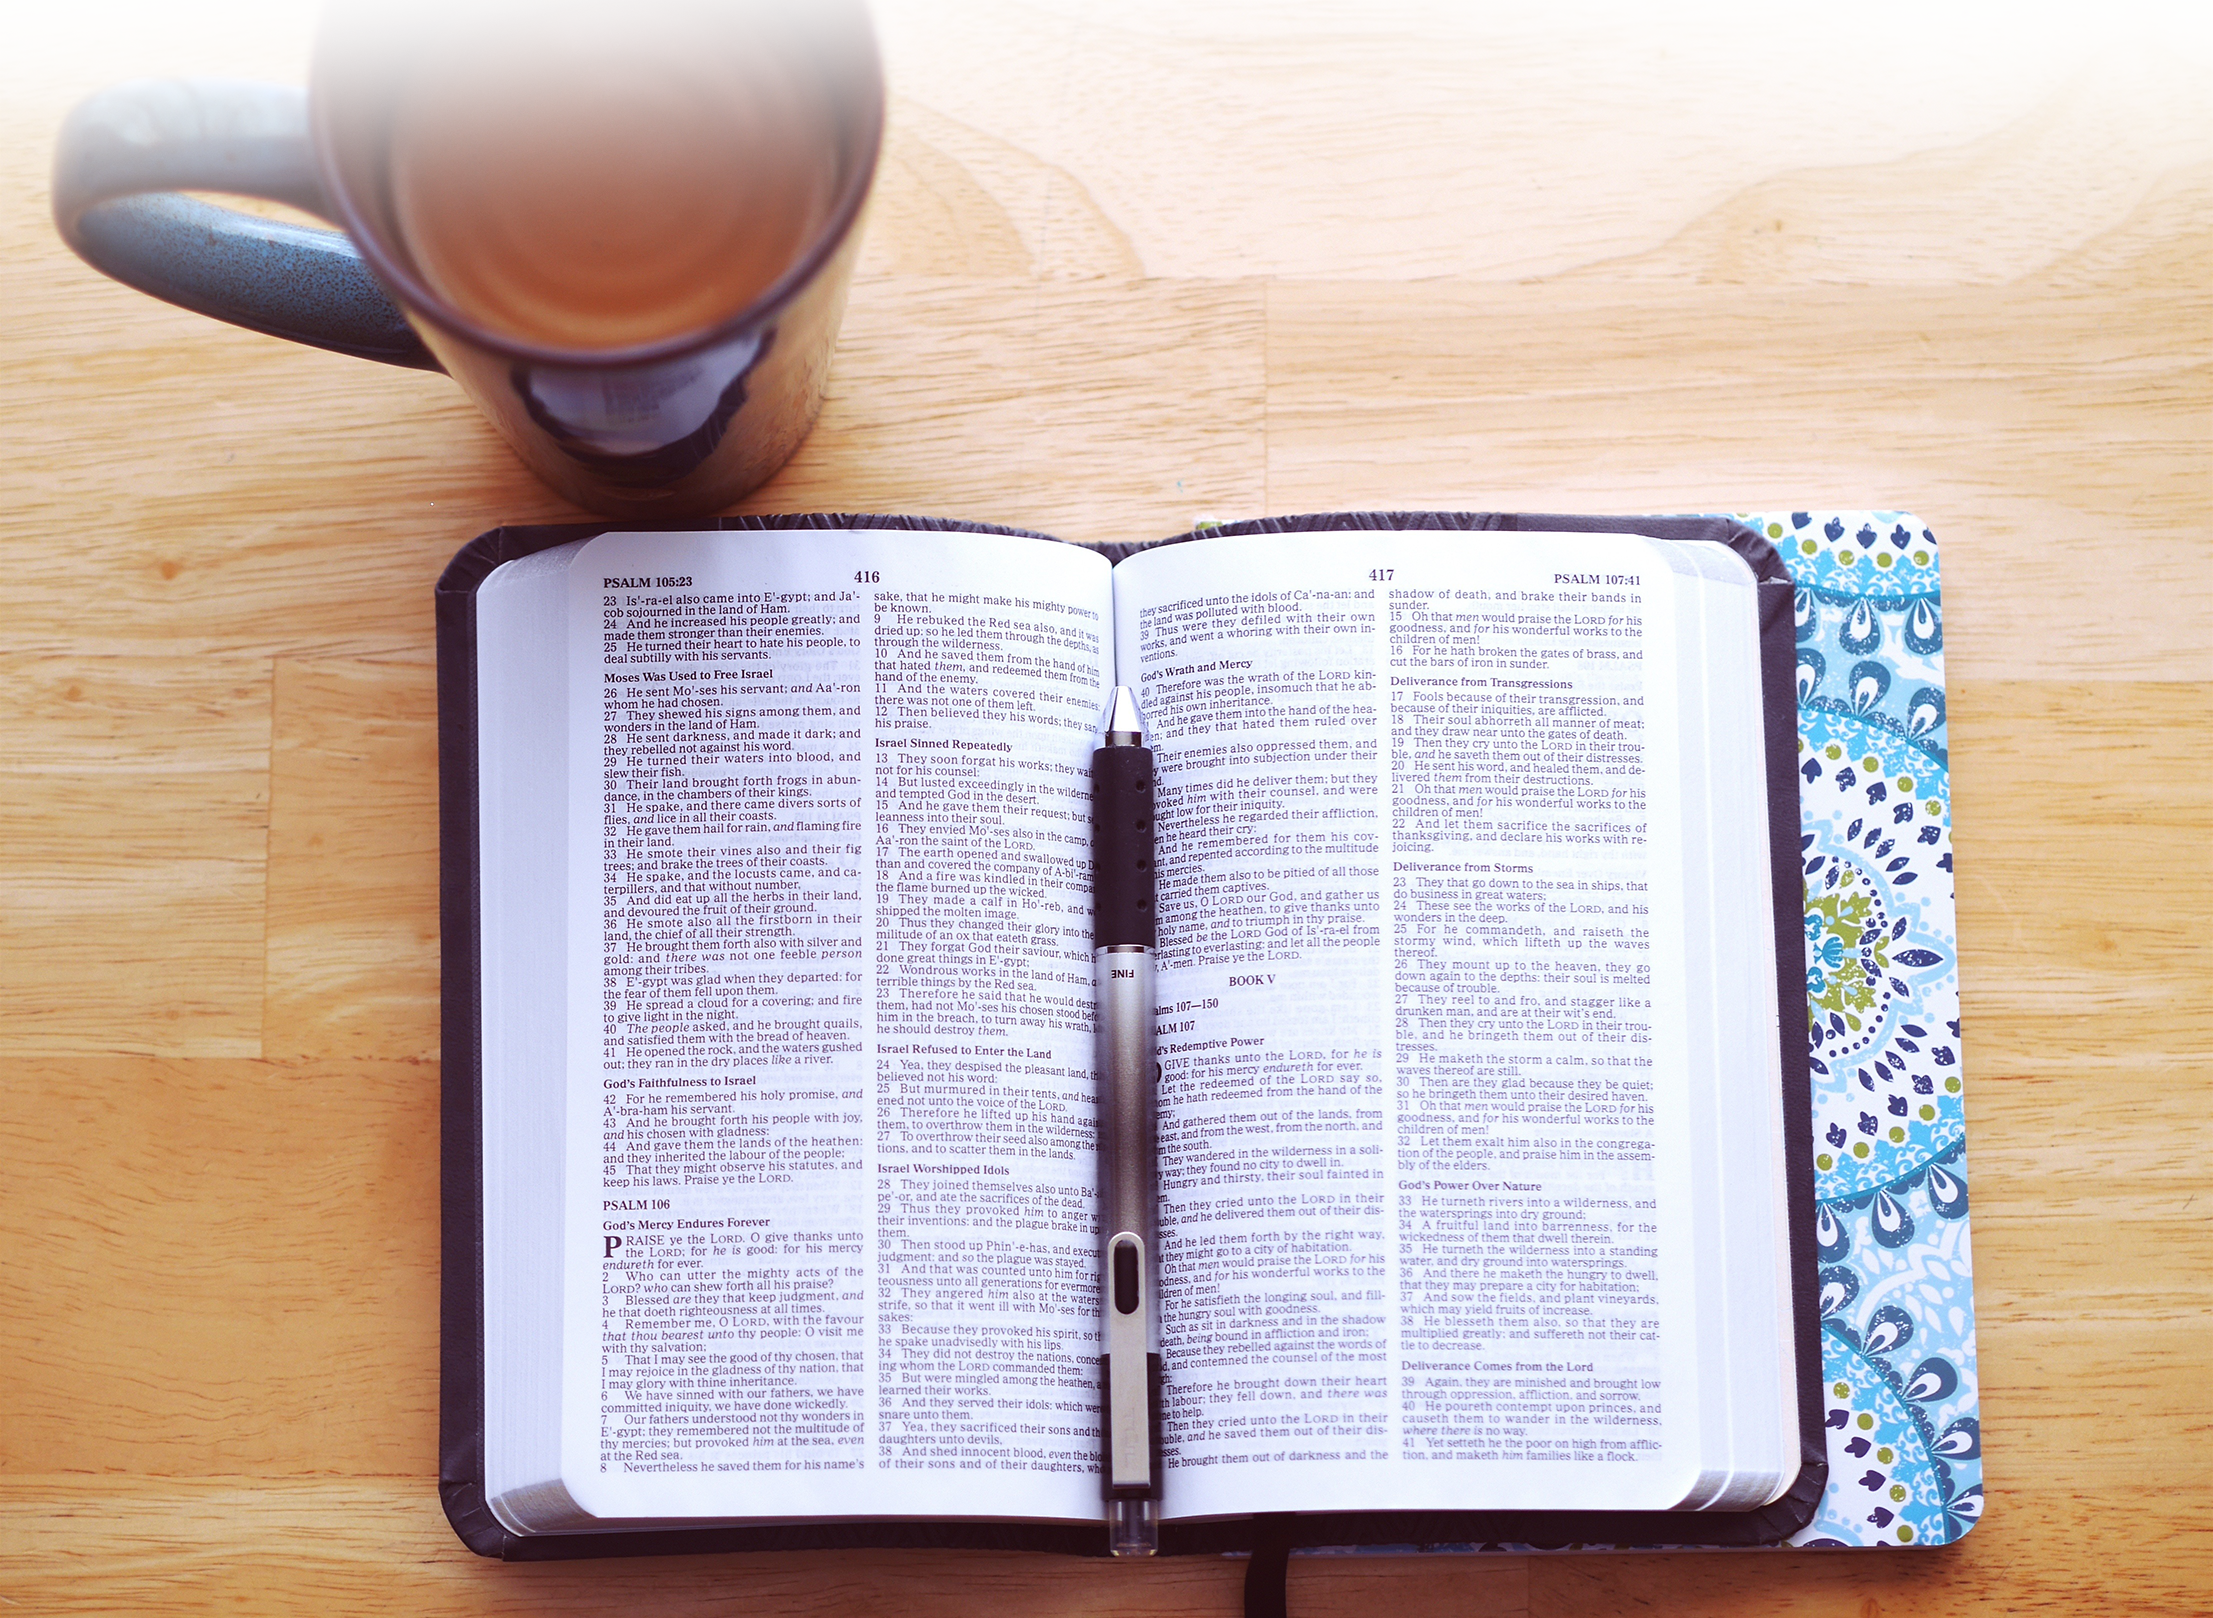 PSALM 105:23
416
23 Is'-ra-el also came into E'-gypt; and Ja'-
cob sojourned in the land of Ham.
24 And he increased his people greatly; and
made them stronger than their enemies.
25 He turned their heart to hate his people, to
deal subtilly with his servants.
Moses Was Used to Free Israel
26 He sent Mo'-ses his servant; and Aa'-ron
whom he had chosen.
27 They shewed his signs among them, and
wonders in the land of Ham.
28 He sent darkness, and made it dark; and
they rebelled not against his word.
29 He turned their waters into blood, and
slew their fish.
30 Their land brought forth frogs in abun-
dance, in the chambers of their kings.
31 He spake, and there came divers sorts of
flies, and lice in all their coasts.
32 He gave them hail for rain, and flaming fire
in their land.
33 He smote their vines also and their fig
trees; and brake the trees of their coasts.
34 He spake, and the locusts came, and ca-
terpillers, and that without number,
35 And did eat up all the herbs in their land,
and devoured the fruit of their ground.
36 He smote also all the firstborn in their
land, the chief of all their strength.
37 He brought them forth also with silver and
gold: and there was not one feeble person
among their tribes.
38 E'-gypt was glad when they departed: for
the fear of them fell upon them.
39 He spread a cloud for a covering; and fire
to give light in the night.
40 The people asked, and he brought quails,
and satisfied them with the bread of heaven.
41 He opened the rock, and the waters gushed
out; they ran in the dry places like a river.
God's Faithfulness to Israel
42 For he remembered his holy promise, and
A'-bra-ham his servant.
43 And he brought forth his people with joy,
and his chosen with gladness:
44 And gave them the lands of the heathen:
and they inherited the labour of the people;
45 That they might observe his statutes, and
keep his laws. Praise ye the LORD.
PSALM 106
God's Mercy Endures Forever
PRAISE ye the LORD. O give thanks unto
the LORD; for he is good: for his mercy
endureth for ever.
2 Who can utter the mighty acts of the
LORD? who can shew forth all his praise?
3 Blessed are they that keep judgment, and
he that doeth righteousness at all times.
4 Remember me, O LORD, with the favour
that thou bearest unto thy people: O visit me
with thy salvation;
5 That I may see the good of thy chosen, that
I may rejoice in the gladness of thy nation, that
I may glory with thine inheritance.
6 We have sinned with our fathers, we have
committed iniquity, we have done wickedly.
7 Our fathers understood not thy wonders in
E'-gypt; they remembered not the multitude of
thy mercies; but provoked him at the sea, even
at the Red sea.
8 Nevertheless he saved them for his name's
sake, that he might make his mighty power to
be known.
9 He rebuked the Red sea also, and it was
dried up: so he led them through the depths, as
through the wilderness.
10 And he saved them from the hand of him
that hated them, and redeemed them from the
hand of the enemy.
11 And the waters covered their enemies:
there was not one of them left.
12 Then believed they his words; they sang
his praise.
Israel Sinned Repeatedly
13 They soon forgat his works; they wait
not for his counsel:
14 But lusted exceedingly in the wilderne
and tempted God in the desert.
15 And he gave them their request; but
leanness into their soul.
16 They envied Mo'-ses also in the camp,
Aa'-ron the saint of the LORD.
17 The earth opened and swallowed up
than and covered the company of A-bi'-ram
18 And a fire was kindled in their compa
the flame burned up the wicked.
19 They made a calf in Ho'-reb, and
shipped the molten image.
20 Thus they changed their glory into the
militude of an ox that eateth grass.
21 They forgat God their saviour, which
done great things in E'-gypt;
22 Wondrous works in the land of Ham,
terrible things by the Red sea.
23 Therefore he said that he would destr
them, had not Mo'-ses his chosen stood befo
him in the breach, to turn away his wrath,
he should destroy them.
Israel Refused to Enter the Land
24 Yea, they despised the pleasant land,
believed not his word:
25 But murmured in their tents, and hea
ened not unto the voice of the LORD.
26 Therefore he lifted up his hand again
them, to overthrow them in the wilderness:
27 To overthrow their seed also among the
tions, and to scatter them in the lands.
Israel Worshipped Idols
28 They joined themselves also unto Ba'-
pe'-or, and ate the sacrifices of the dead.
29 Thus they provoked him to anger
their inventions: and the plague brake in up
them.
30 Then stood up Phin'-e-has, and execu
judgment: and so the plague was stayed.
31 And that was counted unto him for rig
teousness unto all generations for evermore
32 They angered him also at the waters
strife, so that it went ill with Mo'-ses for th
sakes:
33 Because they provoked his spirit, so
he spake unadvisedly with his lips.
34 They did not destroy the nations, conce
ing whom the LORD commanded them:
35 But were mingled among the heathen,
learned their works.
36 And they served their idols: which were
snare unto them.
37 Yea, they sacrificed their sons and th
daughters unto devils,
38 And shed innocent blood, even the blo
of their sons and of their daughters, who
417
PSALM 107:41
they sacrificed unto the idols of Ca'-na-an: and
the land was polluted with blood.
39 Thus were they defiled with their own
works, and went a whoring with their own in-
ventions.
God's Wrath and Mercy
40 Therefore was the wrath of the LORD kin-
dled against his people, insomuch that he ab-
orred his own inheritance.
And he gave them into the hand of the hea-
en; and they that hated them ruled over
em.
Their enemies also oppressed them, and
y were brought into subjection under their
nd.
Many times did he deliver them; but they
voked him with their counsel, and were
ught low for their iniquity.
Nevertheless he regarded their affliction,
en he heard their cry:
And he remembered for them his cov-
ant, and repented according to the multitude
his mercies.
He made them also to be pitied of all those
t carried them captives.
Save us, O LORD our God, and gather us
m among the heathen, to give thanks unto
holy name, and to triumph in thy praise.
Blessed be the LORD God of Is'-ra-el from
erlasting to everlasting: and let all the people
y, A'-men. Praise ye the LORD.
BOOK V
alms 107—150
ALM 107
d's Redemptive Power
GIVE thanks unto the LORD, for he is
good: for his mercy endureth for ever.
Let the redeemed of the LORD say so,
om he hath redeemed from the hand of the
emy;
And gathered them out of the lands, from
e east, and from the west, from the north, and
m the south.
They wandered in the wilderness in a soli-
y way; they found no city to dwell in.
Hungry and thirsty, their soul fainted in
em.
Then they cried unto the LORD in their
uble, and he delivered them out of their dis-
sses.
And he led them forth by the right way,
t they might go to a city of habitation.
Oh that men would praise the LORD for his
odness, and for his wonderful works to the
ldren of men!
For he satisfieth the longing soul, and fill-
the hungry soul with goodness.
Such as sit in darkness and in the shadow
death, being bound in affliction and iron;
Because they rebelled against the words of
d, and contemned the counsel of the most
gh:
Therefore he brought down their heart
th labour; they fell down, and there was
ne to help.
Then they cried unto the LORD in their
uble, and he saved them out of their dis-
sses.
He brought them out of darkness and the
shadow of death, and brake their bands in
sunder.
15 Oh that men would praise the LORD for his
goodness, and for his wonderful works to the
children of men!
16 For he hath broken the gates of brass, and
cut the bars of iron in sunder.
Deliverance from Transgressions
17 Fools because of their transgression, and
because of their iniquities, are afflicted.
18 Their soul abhorreth all manner of meat;
and they draw near unto the gates of death.
19 Then they cry unto the LORD in their trou-
ble, and he saveth them out of their distresses.
20 He sent his word, and healed them, and de-
livered them from their destructions.
21 Oh that men would praise the LORD for his
goodness, and for his wonderful works to the
children of men!
22 And let them sacrifice the sacrifices of
thanksgiving, and declare his works with re-
joicing.
Deliverance from Storms
23 They that go down to the sea in ships, that
do business in great waters;
24 These see the works of the LORD, and his
wonders in the deep.
25 For he commandeth, and raiseth the
stormy wind, which lifteth up the waves
thereof.
26 They mount up to the heaven, they go
down again to the depths: their soul is melted
because of trouble.
27 They reel to and fro, and stagger like a
drunken man, and are at their wit's end.
28 Then they cry unto the LORD in their trou-
ble, and he bringeth them out of their dis-
tresses.
29 He maketh the storm a calm, so that the
waves thereof are still.
30 Then are they glad because they be quiet;
so he bringeth them unto their desired haven.
31 Oh that men would praise the LORD for his
goodness, and for his wonderful works to the
children of men!
32 Let them exalt him also in the congrega-
tion of the people, and praise him in the assem-
bly of the elders.
God's Power Over Nature
33 He turneth rivers into a wilderness, and
the watersprings into dry ground;
34 A fruitful land into barrenness, for the
wickedness of them that dwell therein.
35 He turneth the wilderness into a standing
water, and dry ground into watersprings.
36 And there he maketh the hungry to dwell,
that they may prepare a city for habitation;
37 And sow the fields, and plant vineyards,
which may yield fruits of increase.
38 He blesseth them also, so that they are
multiplied greatly; and suffereth not their cat-
tle to decrease.
Deliverance Comes from the Lord
39 Again, they are minished and brought low
through oppression, affliction, and sorrow.
40 He poureth contempt upon princes, and
causeth them to wander in the wilderness,
where there is no way.
41 Yet setteth he the poor on high from afflic-
tion, and maketh him families like a flock.
FINE